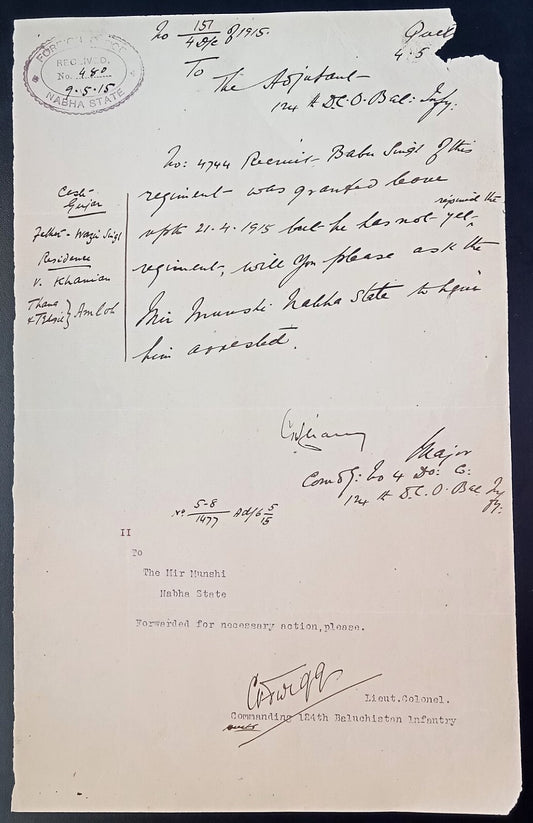 FOREIGN OFFICE
RECEIVED.
No. 480
9.5.15
NABHA STATE
No 151/4 D/C of 1915.
4.5
To
The Adjutant
124th D.C.O. Bal: Infy.
No: 4744 Recruit Babu Singh of this
regiment was granted leave
upto 21.4.1915 but he has not yet rejoined the
regiment, will you please ask the
Mir Munshi Nabha State to have
him arrested.
Caste
Gujar
Father - Wazir Singh
Residence
V. Khanian
Thana
& Tehsil } Amloh
Major
Comdg: No 4 Do: C:
124th D.C.O. Bal Infy:
No 5-8/1477 Ad/6 5/15
II
To
The Mir Munshi
Nabha State
Forwarded for necessary action,please.
Lieut.Colonel.
Commanding 124th Baluchistan Infantry